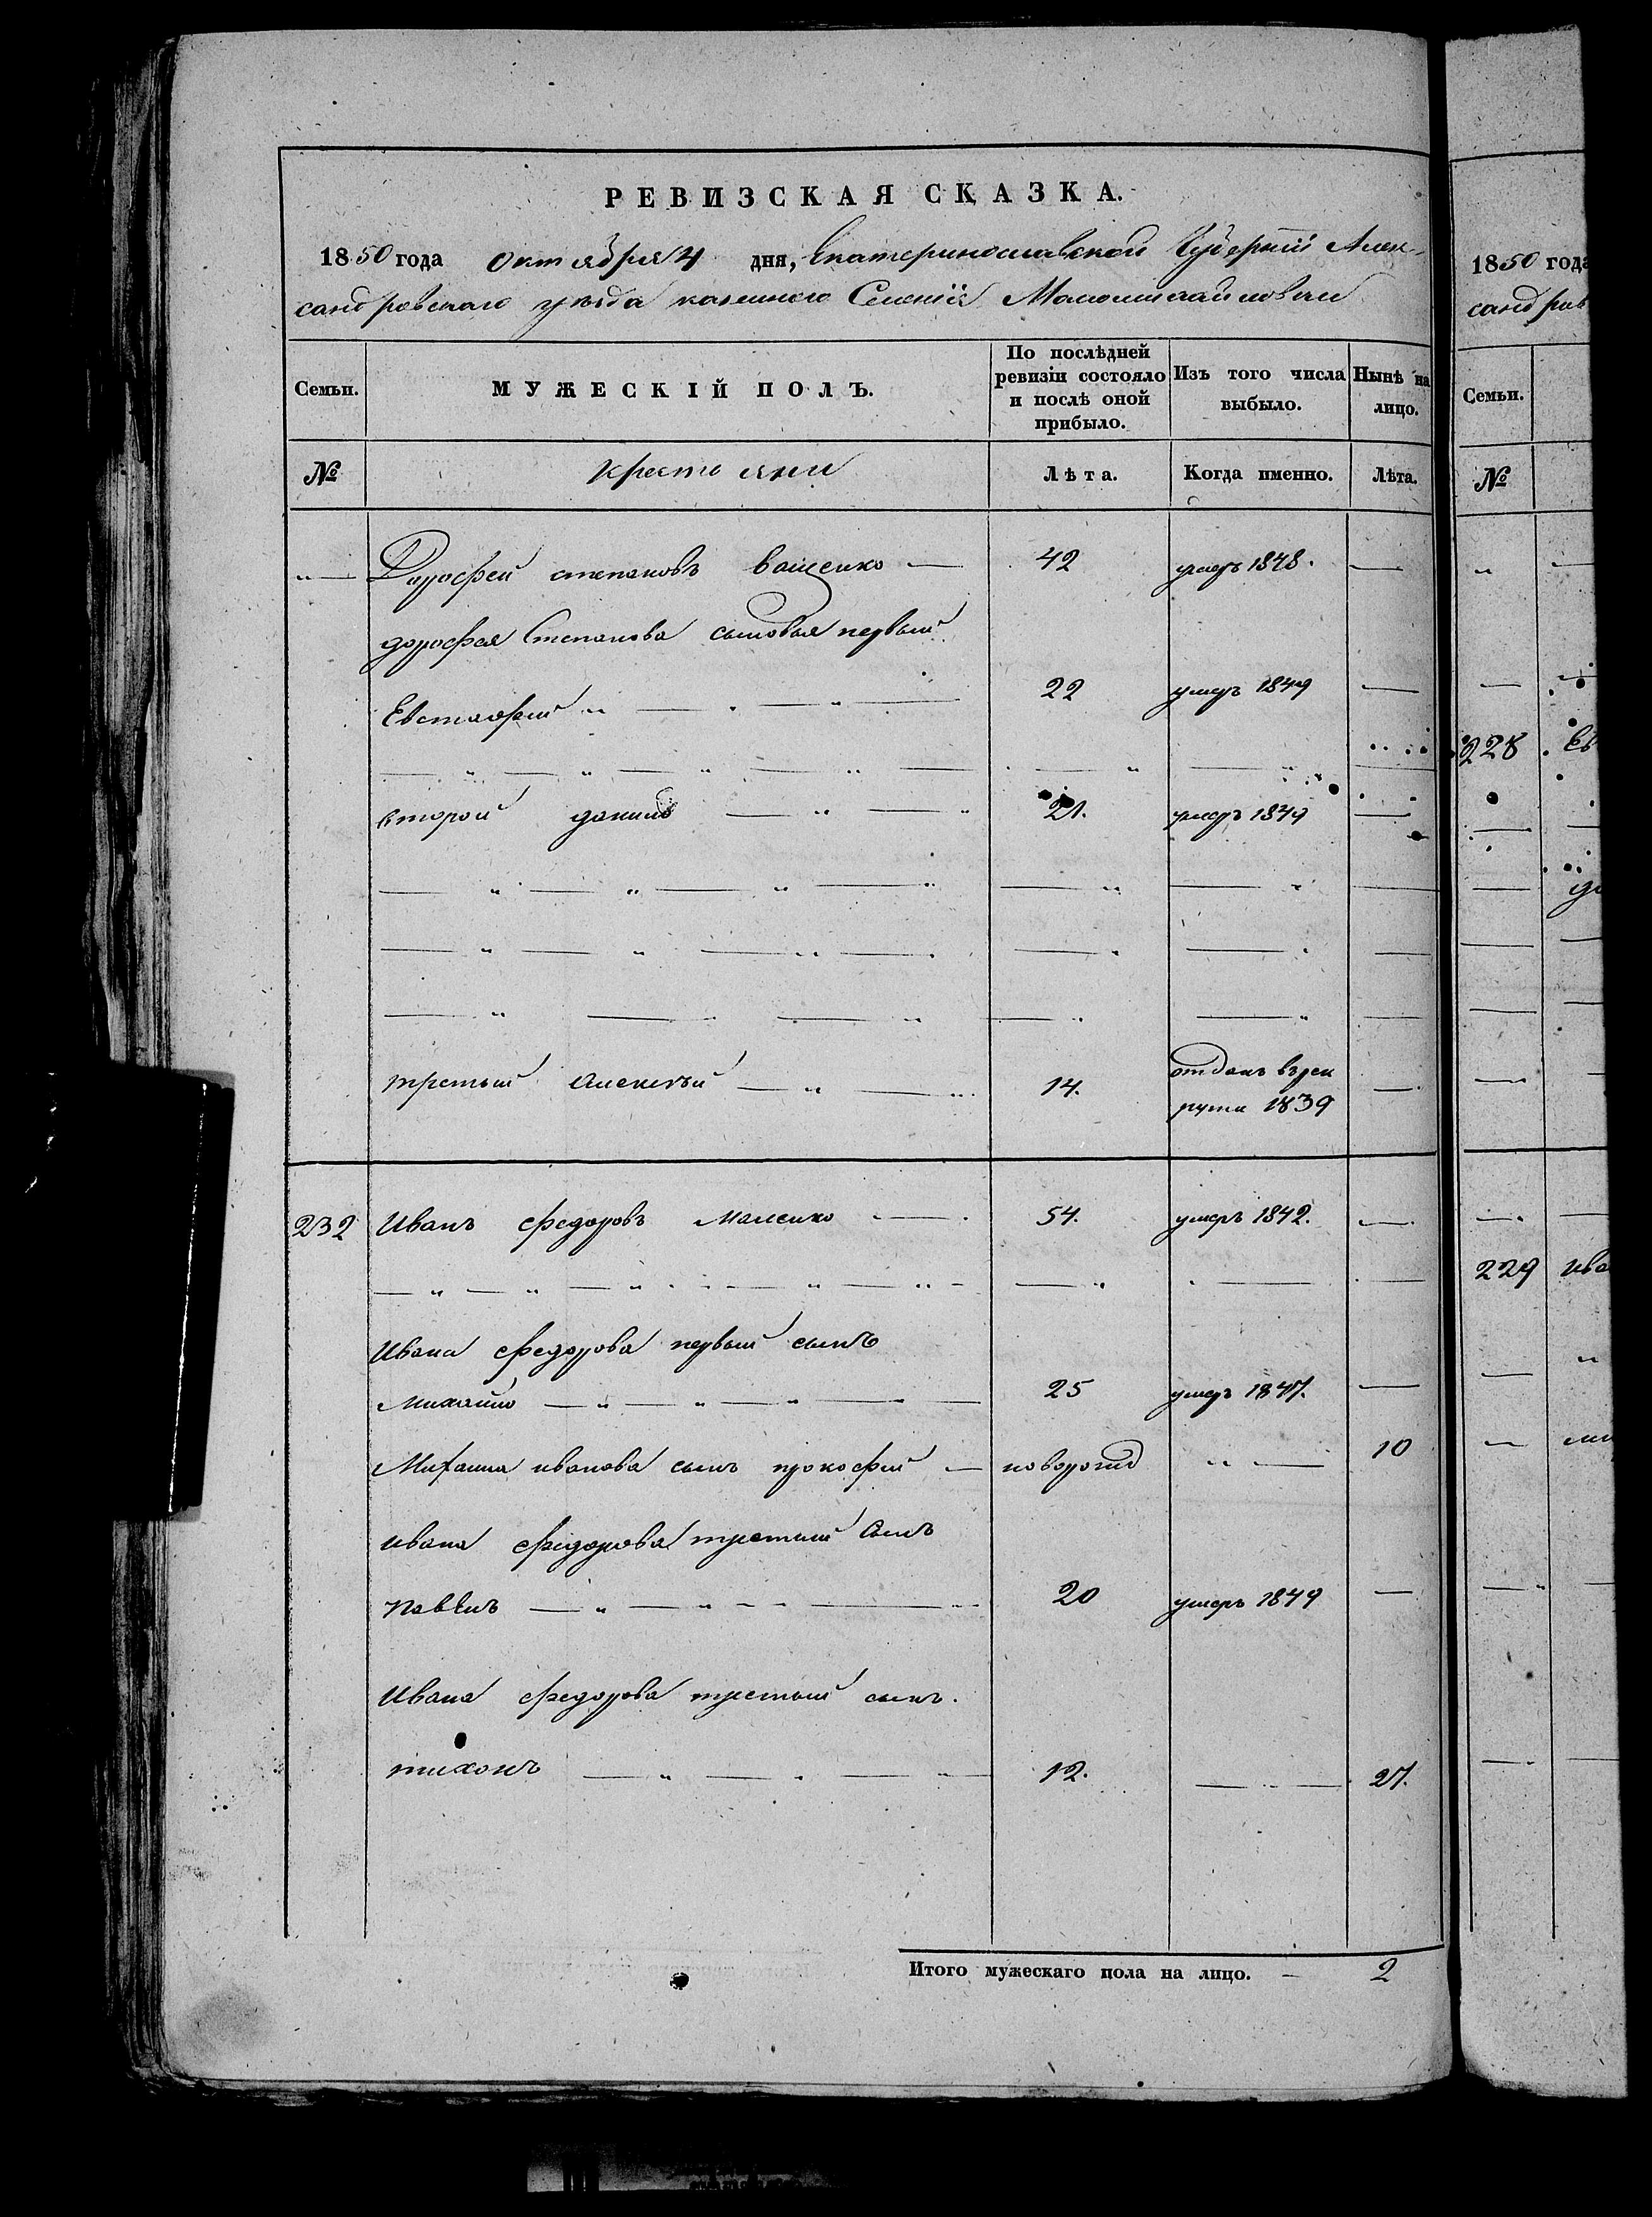 РЕВИЗСКАЯ СКАЗКА.
1850 года октября 4 дня, Екатеринославской Губернии Алек-
сандровскаго уезда казенного Селения Маломихайловки
Семьи. МУЖЕСКІЙ ПОЛЪ. По послѣдней ревизіи состояло и послѣ оной прибыло. Изъ того числа выбыло. Нынѣ на лицо.
№ крестьяни Лѣта. Когда именно. Лѣта.
Дорофей степановъ ващенко 42 умеръ 1848.
дорофея Степанова сыновья первый
Евстафий 22 умеръ 1849
второй данило 21. умеръ 1849
третый Алексѣй 14. отданъ врек
руты 1839
232 Иванъ федоровъ 54. умеръ 1842.
Ивана федорова первый сынъ
Михайло 25 умеръ 1847.
Михаила иванова сынъ прокофий новорожд 10
ивана федорова третый сынъ
павелъ 20 умеръ 1849
Ивана федорова третый сынъ.
тихонъ 12. 27.
Итого мужескаго пола на лицо. 2
1850 года
сандров
Семьи.
№
228
229 ива